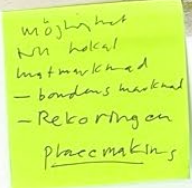 möjlighet
till lokal
matmarknad
- bondens marknad
- Rekoringen
placemaking